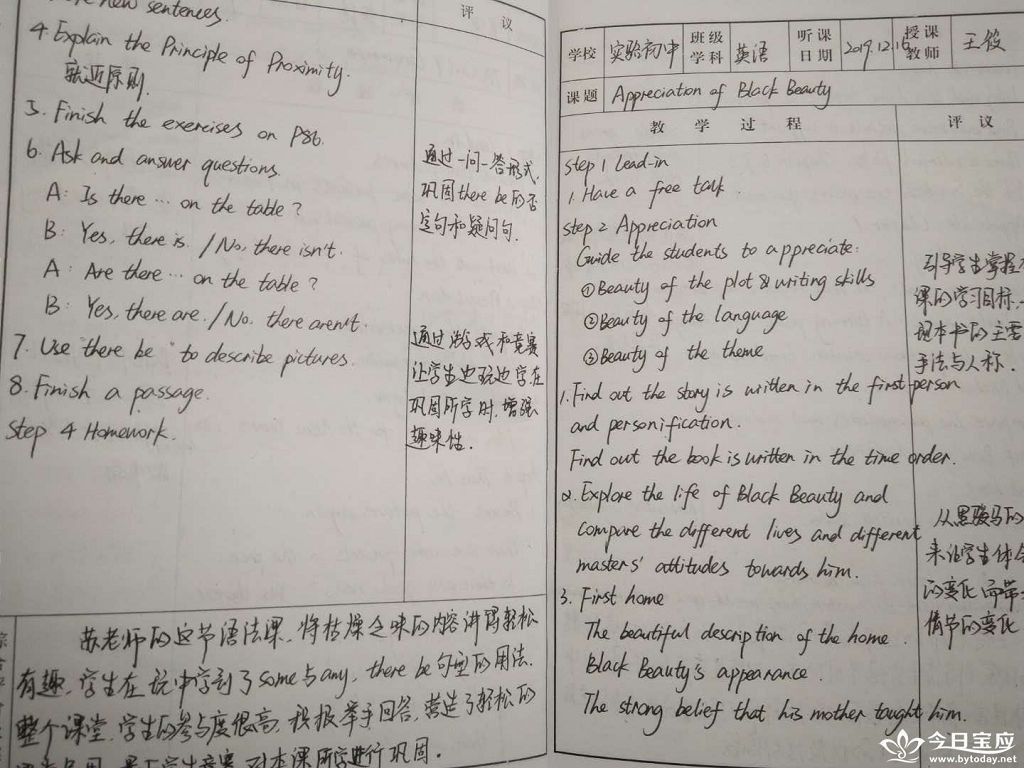 new sentences.
评 议
4. Explain the Principle of Proximity.
就近原则.
5. Finish the exercises on P86.
6. Ask and answer questions.
A: Is there … on the table?
B: Yes, there is. / No, there isn't.
A: Are there … on the table?
B: Yes, there are. / No, there aren't.
7. Use "there be" to describe pictures.
8. Finish a passage.
Step 4 Homework.
通过一问一答形式,
巩固there be的否
定句和疑问句.
通过游戏和竞赛
让学生边玩边学在
巩固所学时,增强
趣味性.
苏老师的这节语法课,将枯燥乏味的内容讲得轻松
有趣,学生在玩中学到了some与any, there be句型的用法.
整个课堂,学生的参与度很高,积极举手回答,营造了轻松的
学生竞赛,对本课所学进行巩固.
学校 实验初中 班级学科 英语 听课日期 2019.12.16 授课教师 王
课题 Appreciation of Black Beauty
教 学 过 程 评 议
Step 1 Lead-in
1. Have a free talk.
Step 2 Appreciation
Guide the students to appreciate:
①Beauty of the plot & writing skills
②Beauty of the language
③Beauty of the theme
1. Find out the story is written in the first person
and personification.
Find out the book is written in the time order.
2. Explore the life of Black Beauty and
compare the different lives and different
masters' attitudes towards him.
3. First home
The beautiful description of the home.
Black Beauty's appearance.
The strong belief that his mother taught him.
引导学生掌握
课的学习目标,
现本书的主要
手法与人称.
从黑骏马的
来让学生体会
的变化而带
情节的变化
今日宝应
www.bytoday.net